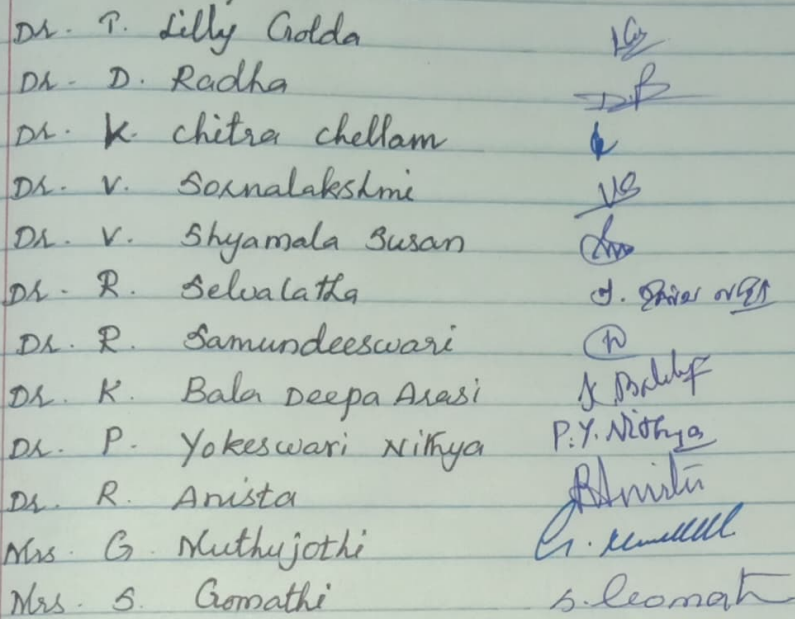 Dr. P. Lilly Golda
Dr. D. Radha
Dr. K. Chitra Chellam
Dr. V. Sornalakshmi VS
Dr. V. Shyamala Susan
Dr. R. Selvalatha
Dr. R. Samundeeswari
Dr. K. Bala Deepa Arasi
Dr. P. Yokeswari Nithya P.Y. Nithya
Dr. R. Anista R Anista
Mrs. G. Muthujothi
Mrs. S. Gomathi S. Gomathi